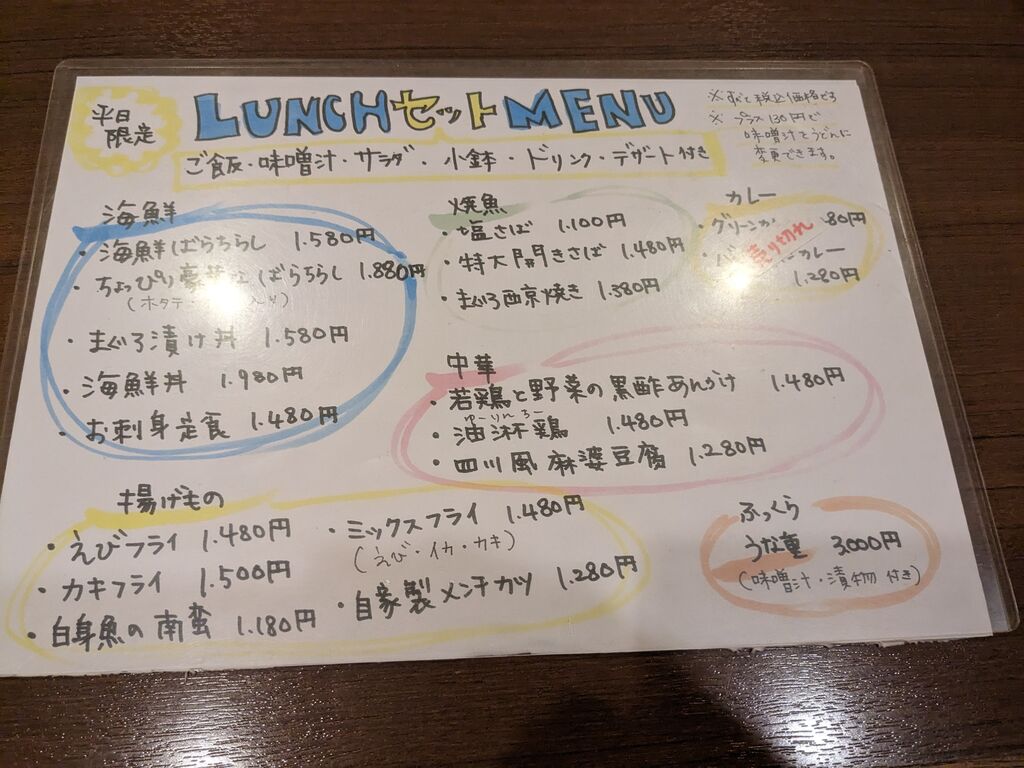 平日
限定
LUNCHセットMENU
※すべて税込価格です
※プラス130円で
味噌汁をうどんに
変更できます。
ご飯・味噌汁・サラダ・小鉢・ドリンク・デザート付き
海鮮
・海鮮ばらちらし 1.580円
・ちょっぴり豪華 ばらちらし 1.880円
(ホタテ・
・まぐろ漬け丼 1.580円
・海鮮丼 1.980円
・お刺身定食 1.480円
焼魚
・塩さば 1.100円
・特大開きさば 1.480円
・まぐろ西京焼き 1.380円
カレー
・グリーンカ 80円
売り切れ
・バ ーカレー
1.280円
中華
・若鶏と野菜の黒酢あんかけ 1.480円
ゆーりんちー
・油淋鶏 1.480円
・四川風麻婆豆腐 1.280円
揚げもの
・えびフライ 1.480円
・カキフライ 1.500円
・白身魚の南蛮 1.180円
・ミックスフライ 1.480円
(えび・イカ・カキ)
・自家製メンチカツ 1.280円
ふっくら
うな重 3.000円
(味噌汁・漬物付き)